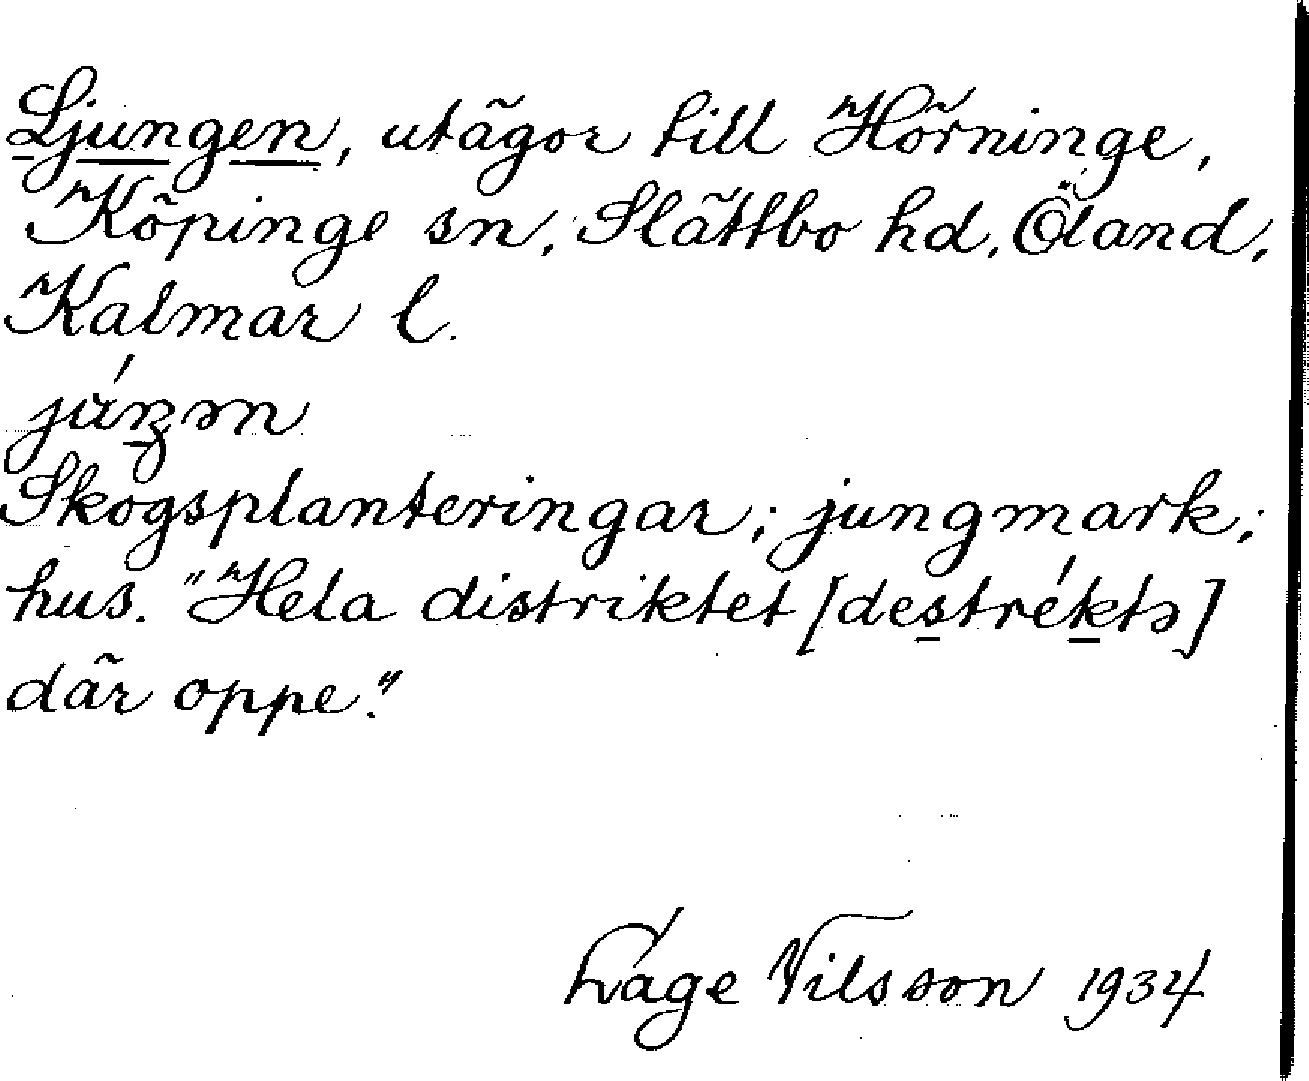 Ljungen, utägor till Hörninge,
Köpinge sn, Slättbo hd, Öland,
Kalmar l.
júŋən
Skogsplanteringar; jungmark;
hus. "Hela distriktet [destréktə]
där oppe."
Låge Nilsson 1934